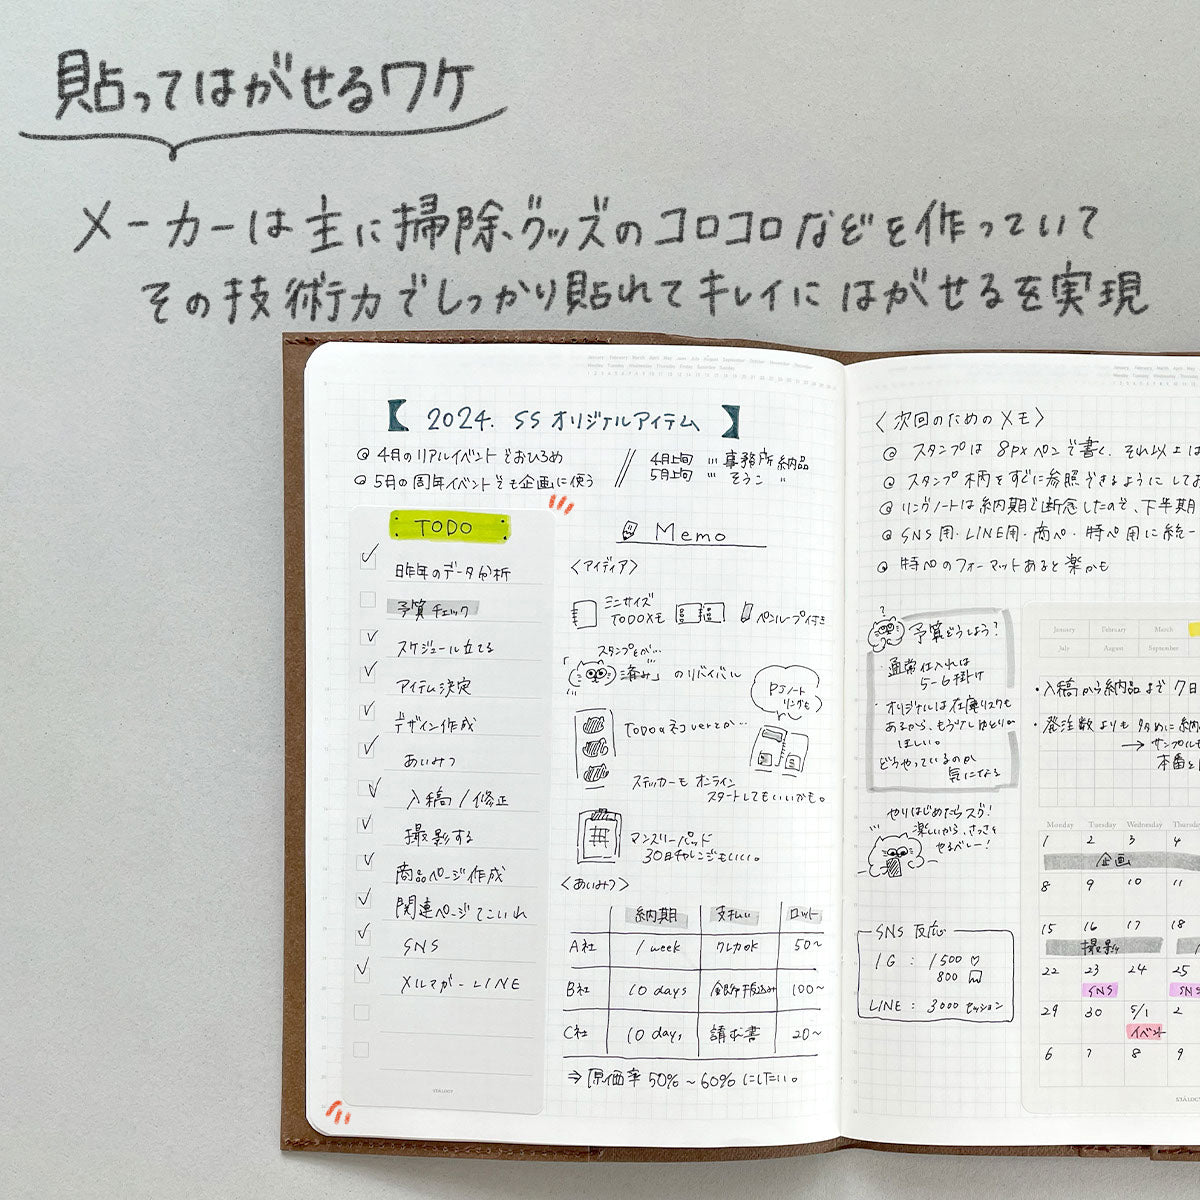 貼ってはがせるワケ
メーカーは主に掃除グッズのコロコロなどを作っていて
その技術力でしっかり貼れてキレイにはがせるを実現
January February March April May June July August September October November December
Monday Tuesday Wednesday Thursday Friday Saturday Sunday
【2024. SS オリジナルアイテム】
◎ 4月のリアルイベントでおひろめ
◎ 5月の周年イベントでも企画に使う
4月上旬 … 事務所納品
5月上旬 … そうこ 〃
TODO
昨年のデータ分析
予算チェック
スケジュール立てる
アイテム決定
デザイン作成
あいみつ
入稿/修正
撮影する
商品ページ作成
関連ページてこいれ
SNS
メルマガ-LINE
STÁLOGY
Memo
〈アイディア〉
ミニサイズ
TODOメモ
ペンループ付き
スタンプとか…
「済み」のリバイバル
PJノート
リングも
TODOのネコverとか…
ステッカーも オンライン
スタートしてもいいかも。
マンスリーパッド
30日チャレンジもいい。
〈あいみつ〉
納期 支払い ロット
A社 1 week クレカOK 50~
B社 10 days 銀行振込み 100~
C社 10 days 請求書 20~
⇒ 原価率 50%~60%にしたい。
〈次回のためのメモ〉
◎ スタンプは 8pxペンで書く、それ以上は
◎ スタンプ柄をすぐに参照できるようにしてお
◎ リングノートは納期で断念したので、下半期
◎ SNS用・LINE用・商ペ・特ペ用に統一
◎ 特ペのフォーマットあると楽かも
?
予算どうしよう?
・通常仕入れは
5-6掛け
・オリジナルは在庫リスクも
あるから、もう少しゆとりが
ほしい。
どうやっているのか
気になる
やりはじめたらスグ!
楽しいから、さっさと
やるべレー!
SNS 反応
IG : 1500 ♡
800
LINE : 3000 セッション
January February March
July August September
・入稿から納品まで 7日
・発注数よりも 多めに納
→ サンプルも
本番と
Monday Tuesday Wednesday Thursday
1 2 3 4
企画
8 9 10 11
15 16 17 18
撮影
22 23 24 25
SNS SNS
29 30 5/1 2
イベント
6 7 8 9
STÁLOGY